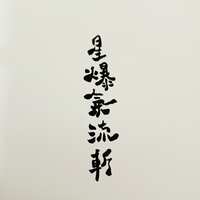 星爆氣流斬